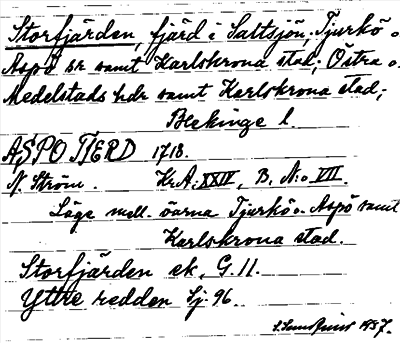 Storfjärden, fjärd i Saltsjön; Tjurkö o.
Aspö sr samt Karlskrona stad; Östra o.
Medelstads hdr samt Karlskrona stad;
Blekinge l.
ASPO FIERD 1718.
N. Ström. Kr.A. XXIV, B. N:o VII.
Läge mell. öarna Tjurkö o. Aspö samt
Karlskrona stad.
Storfjärden ek. G. 11.
Yttre redden Sj. 96.
1957.